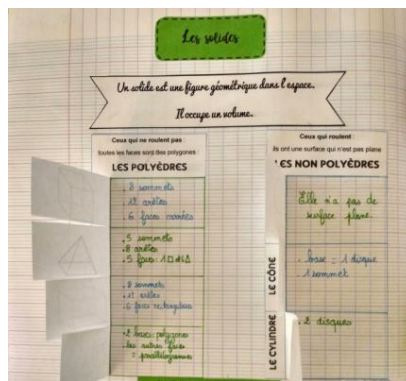 Les solides
Un solide est une figure géométrique dans l'espace.
Il occupe un volume.
Ceux qui ne roulent pas
toutes les faces sont des polygones
LES POLYÈDRES
. 8 sommets
. 12 arêtes
. 6 faces carrées
. 5 sommets
. 8 arêtes
. 5 faces : 1□ et 4△
. 8 sommets
. 12 arêtes
. 6 faces rectangulaires
. 2 bases polygones
. les autres faces
= parallélogrammes
Ceux qui roulent
ils ont une surface qui n'est pas plane
ES NON POLYÈDRES
Elle n'a pas de
surface plane.
LE CÔNE
. base = 1 disque
. 1 sommet
LE CYLINDRE
. 2 disques